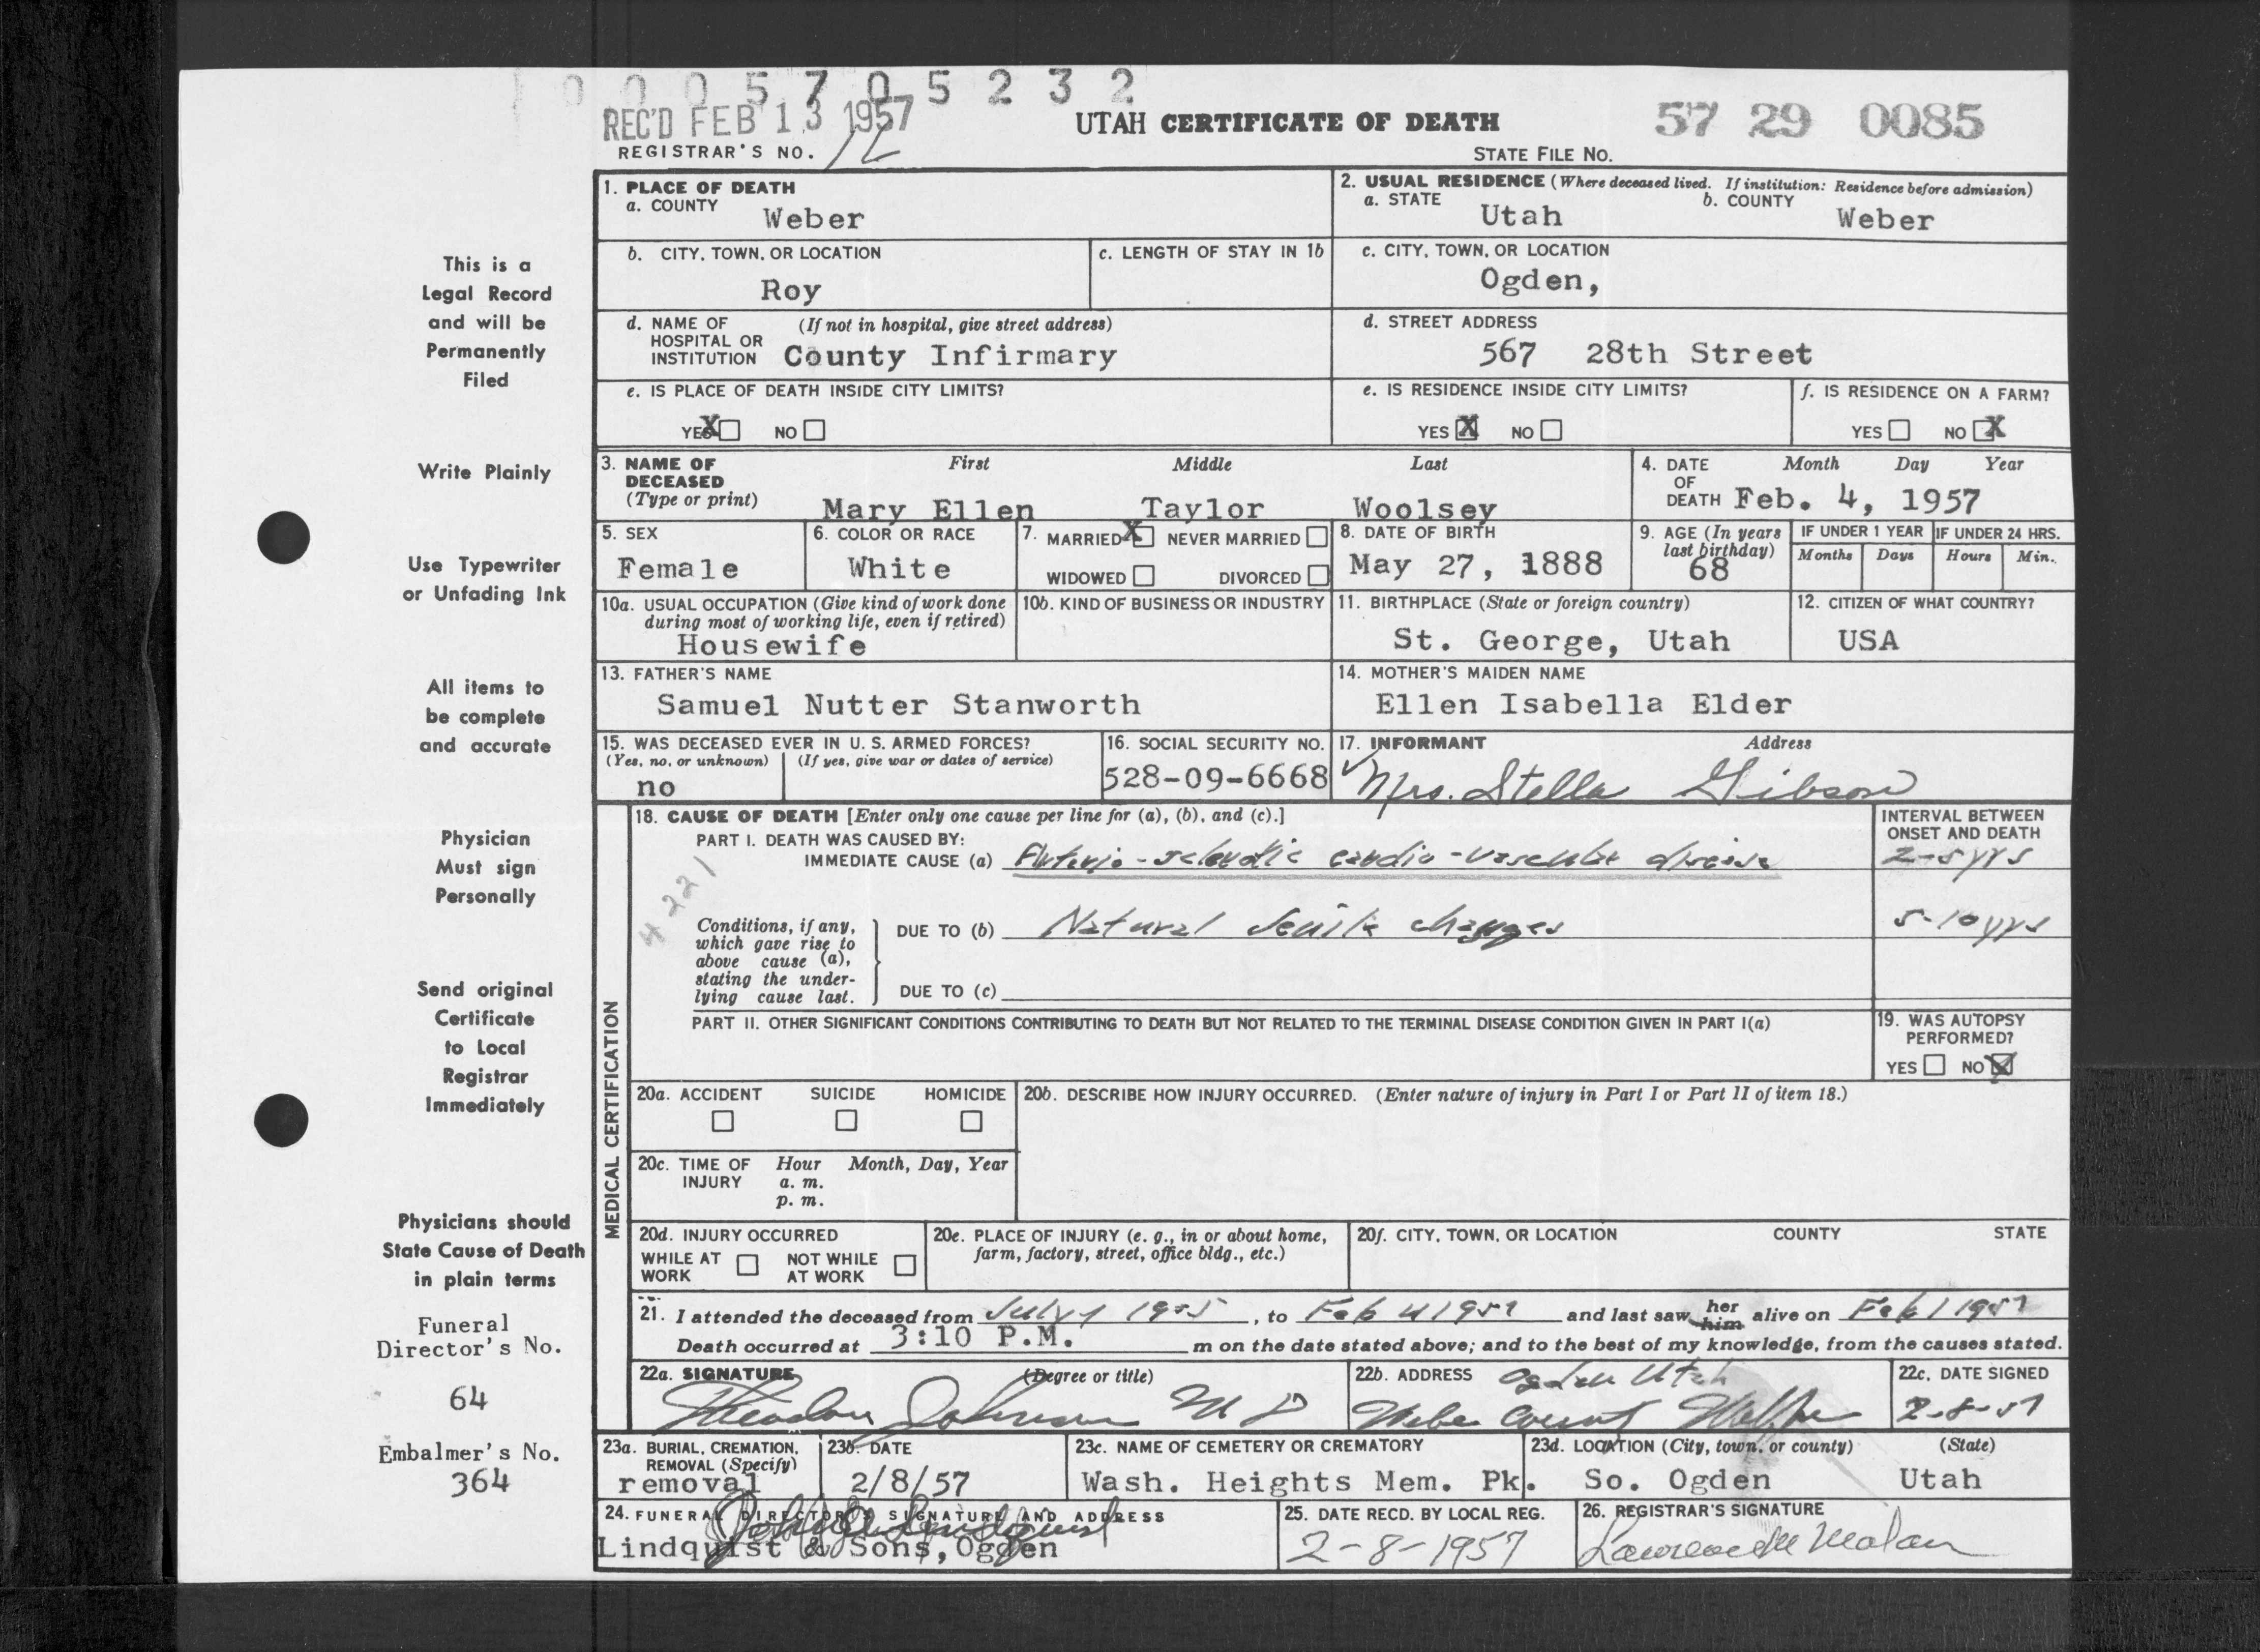 10005705232
REC'D FEB 13 1957
UTAH CERTIFICATE OF DEATH
57 29 0085
REGISTRAR'S NO.
STATE FILE NO.
1. PLACE OF DEATH
a. COUNTY
Weber
2. USUAL RESIDENCE (Where deceased lived. If institution: Residence before admission)
a. STATE b. COUNTY
Utah Weber
b. CITY, TOWN, OR LOCATION
Roy
c. LENGTH OF STAY IN 1b
c. CITY, TOWN, OR LOCATION
Ogden,
d. NAME OF (If not in hospital, give street address)
HOSPITAL OR
INSTITUTION County Infirmary
d. STREET ADDRESS
567 28th Street
e. IS PLACE OF DEATH INSIDE CITY LIMITS?
YES X NO
e. IS RESIDENCE INSIDE CITY LIMITS?
YES X NO
f. IS RESIDENCE ON A FARM?
YES NO X
3. NAME OF First Middle Last
DECEASED
(Type or print) Mary Ellen Taylor Woolsey
4. DATE Month Day Year
OF
DEATH Feb. 4, 1957
5. SEX
Female
6. COLOR OR RACE
White
7. MARRIED X NEVER MARRIED
WIDOWED DIVORCED
8. DATE OF BIRTH
May 27, 1888
9. AGE (In years
last birthday)
68
IF UNDER 1 YEAR
Months Days
IF UNDER 24 HRS.
Hours Min.
10a. USUAL OCCUPATION (Give kind of work done
during most of working life, even if retired)
Housewife
10b. KIND OF BUSINESS OR INDUSTRY
11. BIRTHPLACE (State or foreign country)
St. George, Utah
12. CITIZEN OF WHAT COUNTRY?
USA
13. FATHER'S NAME
Samuel Nutter Stanworth
14. MOTHER'S MAIDEN NAME
Ellen Isabella Elder
15. WAS DECEASED EVER IN U. S. ARMED FORCES?
(Yes, no, or unknown) (If yes, give war or dates of service)
no
16. SOCIAL SECURITY NO.
528-09-6668
17. INFORMANT Address
Mrs. Stella Gibson
MEDICAL CERTIFICATION
18. CAUSE OF DEATH [Enter only one cause per line for (a), (b), and (c).]
PART I. DEATH WAS CAUSED BY:
IMMEDIATE CAUSE (a) Arterio-sclerotic cardio-vascular disease
INTERVAL BETWEEN
ONSET AND DEATH
2-5 yrs
4221
Conditions, if any,
which gave rise to
above cause (a),
stating the under-
lying cause last.
DUE TO (b) Natural senile changes
5-10 yrs
DUE TO (c)
PART II. OTHER SIGNIFICANT CONDITIONS CONTRIBUTING TO DEATH BUT NOT RELATED TO THE TERMINAL DISEASE CONDITION GIVEN IN PART I(a)
19. WAS AUTOPSY
PERFORMED?
YES NO X
20a. ACCIDENT SUICIDE HOMICIDE
20b. DESCRIBE HOW INJURY OCCURRED. (Enter nature of injury in Part I or Part II of item 18.)
20c. TIME OF Hour Month, Day, Year
INJURY a. m.
p. m.
20d. INJURY OCCURRED
WHILE AT NOT WHILE
WORK AT WORK
20e. PLACE OF INJURY (e. g., in or about home,
farm, factory, street, office bldg., etc.)
20f. CITY, TOWN, OR LOCATION COUNTY STATE
21. I attended the deceased from July 1 1955, to Feb 4 1957 and last saw her him alive on Feb 1 1957
Death occurred at 3:10 P.M. m on the date stated above; and to the best of my knowledge, from the causes stated.
22a. SIGNATURE (Degree or title)
Theodore Johnson M D
22b. ADDRESS Ogden Utah
22c. DATE SIGNED
2-8-57
23a. BURIAL, CREMATION,
REMOVAL (Specify)
removal
23b. DATE
2/8/57
23c. NAME OF CEMETERY OR CREMATORY
Wash. Heights Mem. Pk.
23d. LOCATION (City, town, or county) (State)
So. Ogden Utah
24. FUNERAL DIRECTOR'S SIGNATURE AND ADDRESS
Lindquist & Sons, Ogden
25. DATE RECD. BY LOCAL REG.
2-8-1957
26. REGISTRAR'S SIGNATURE
Lawrence M Malan
This is a
Legal Record
and will be
Permanently
Filed
Write Plainly
Use Typewriter
or Unfading Ink
All items to
be complete
and accurate
Physician
Must sign
Personally
Send original
Certificate
to Local
Registrar
Immediately
Physicians should
State Cause of Death
in plain terms
Funeral
Director's No.
64
Embalmer's No.
364